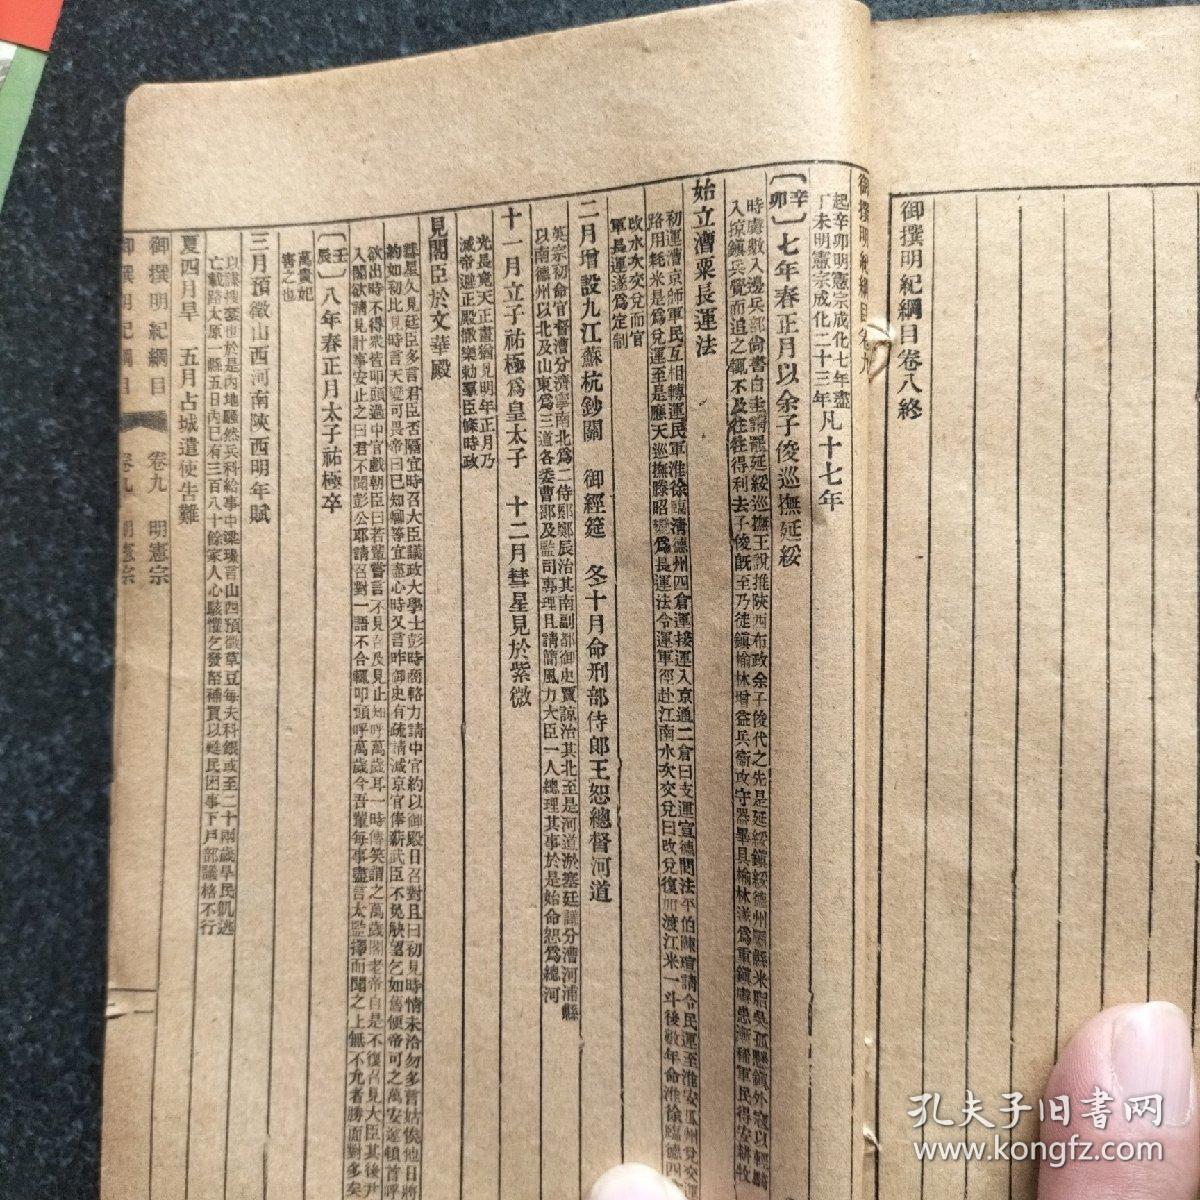 御撰明紀綱目卷八終
御撰明紀綱目卷九
起辛卯明憲宗成化七年盡
丁未明憲宗成化二十三年凡十七年
〔辛卯〕七年春正月以余子俊巡撫延綏
時虜數入邊兵部尚書白圭請罷延綏巡撫王銳推陝西布政余子俊代之先是延綏鎮綏德州屬縣米脂吳
入掠鎮兵覺而追之輒不及往往得利去子俊既至乃徙鎮榆林增益兵衛攻守器畢具榆林遂為重鎮虜患漸稀軍民得安耕牧
始立漕粟長運法
初運漕京師軍民互相轉運民軍淮徐臨清德州四倉運接運入京通二倉曰支運宣德間法平伯陳瑄請令民運至淮安瓜州兌交運
路用耗米是為兌運至是應天巡撫滕昭變為長運法令運軍徑赴江南水次交兌曰改兌復加渡江米一斗後數年命淮徐臨德四
改水次交兌而官
軍長運遂為定制
二月增設九江蘇杭鈔關　御經筵　冬十月命刑部侍郎王恕總督河道
英宗初命官督漕分濟寧南北為二侍郎鄭辰治其南副都御史賈諒治其北至是河道淤塞廷議分漕河沛縣
以南德州以北及山東為三道各委曹郎及監司專理且請簡風力大臣一人總理其事於是始命恕為總河
十一月立子祐極為皇太子　十二月彗星見於紫微
光長竟天正晝猶見明年正月乃
滅帝避正殿撤樂勅羣臣條時政
見閣臣於文華殿
彗星久見廷臣多言君臣否隔宜時召大臣議政大學士彭時商輅力請中官約以御殿日召對且曰初見時情未洽勿多言姑俟他日將
約如初比見時言天變可畏帝曰已知卿等宜盡心時又言昨御史有疏請減京官俸薪武臣不免觖望乞如舊便帝可之萬安遂頓首呼
欲出時不得眾皆叩頭退中官戲朝臣曰若輩嘗言不見召及見止知呼萬歲耳一時傳笑謂之萬歲閣老帝自是不復召見大臣其後尹
入閣欲請見計事安止之曰君不聞彭公耶請召對一語不合輒叩頭呼萬歲今吾輩每事盡言太監擇而聞之上無不允者勝面對多矣
〔壬辰〕八年春正月太子祐極卒
萬貴妃
害之也
三月預徵山西河南陝西明年賦
以謀搜套也於是內地騷然兵科給事中梁璟言山西預徵草豆每夫科銀或至二十兩歲旱民飢逃
亡載路太原一縣五日內已有三百八十餘家人心駭懼乞發帑補買以甦民困事下戶部議格不行
夏四月旱　五月占城遣使告難
御撰明紀綱目　卷九　明憲宗
御撰明紀綱目　卷九　明憲宗
二
孔夫子旧书网
www.kongfz.com